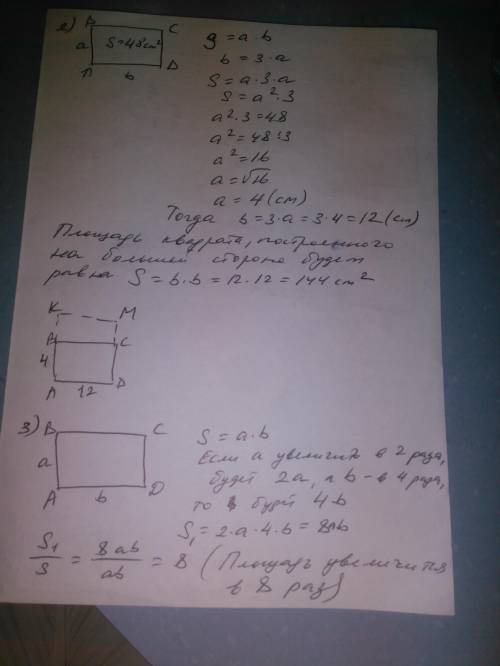 2) B C
a S=48cm²
A b D
S = a·b
b = 3·a
S = a·3·a
S = a²·3
a²·3 = 48
a² = 48:3
a² = 16
a = √16
a = 4 (см)
Тогда b = 3·a = 3·4 = 12 (см)
Площадь квадрата, построенного
на большей стороне будет
равна S = b·b = 12·12 = 144 cm²
K M
B C
4
A 12 D
3) B C
a
A b D
S = a·b
Если a увеличить в 2 раза,
будет 2a, а b - в 4 раза,
то будет 4b
S₁ = 2·a·4·b = 8ab
S₁/S = 8ab/ab = 8 (Площадь увеличится
в 8 раз)